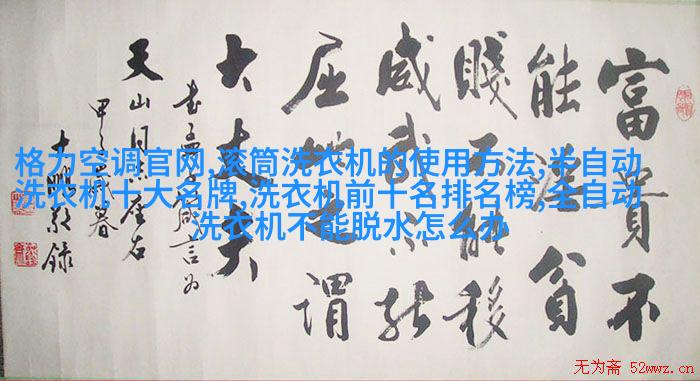 富貴不
能淫貧
賤不能移
威武不能
屈此之謂
大丈夫
書孟子言为
天山同志座右
甲子歲暮
錄
格力空调官网,滚筒洗衣机的使用方法,半自动
洗衣机十大名牌,洗衣机前十名排名榜,全自动
洗衣机不能脱水怎么办
无为斋 52wwz.cn